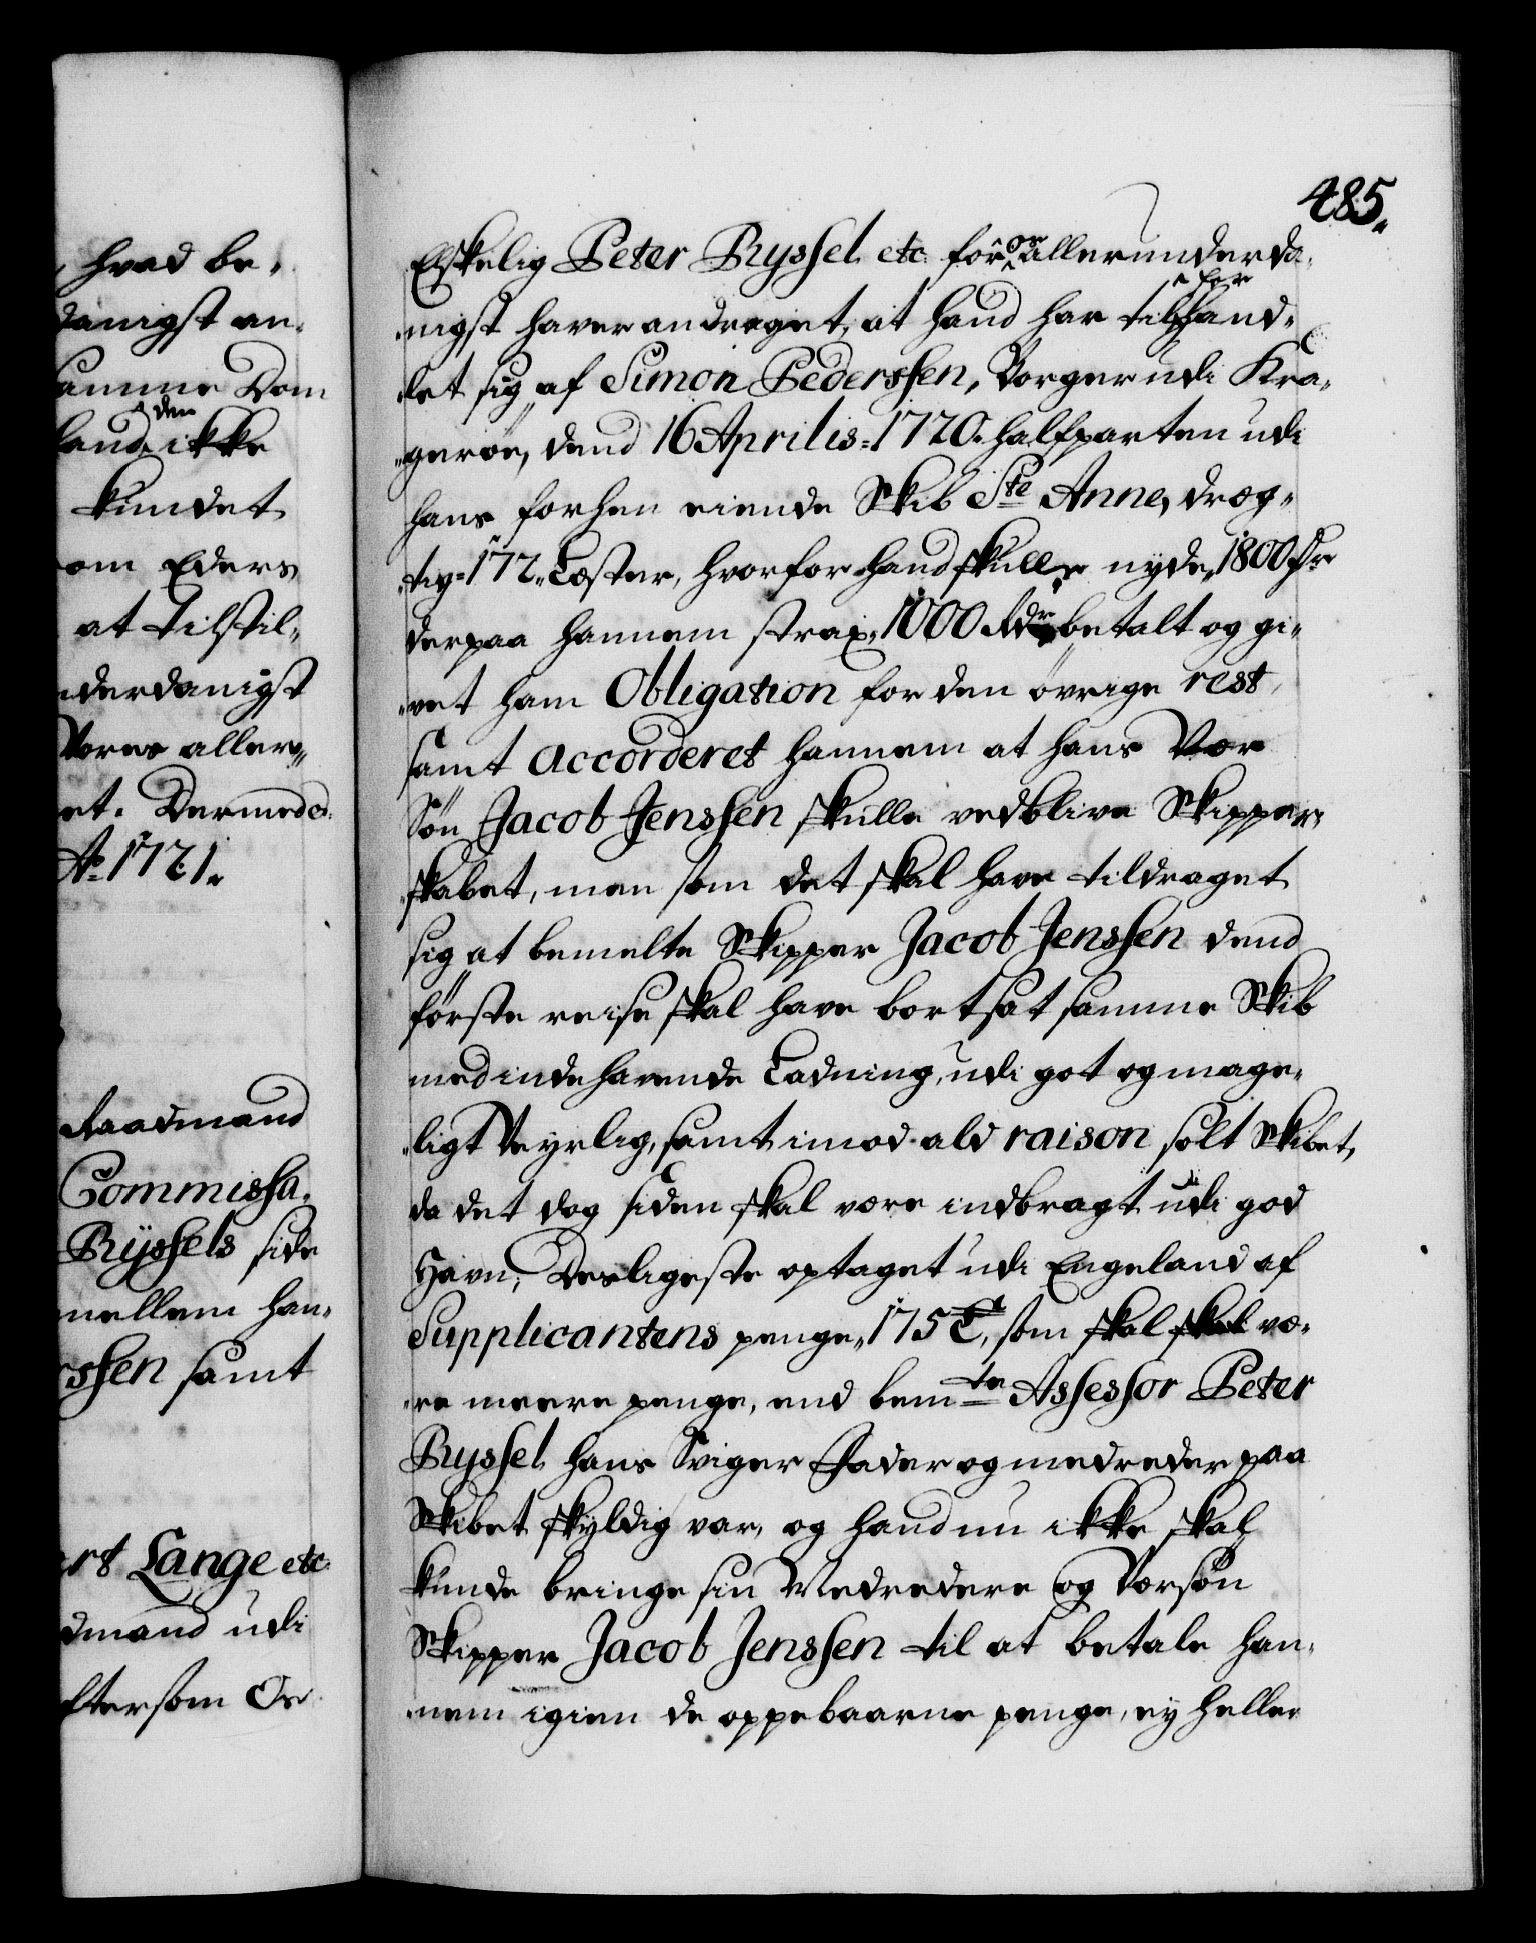 hvad be-
danigst an-
samme Dom
haud den ikke
kundet
om Eders
at tilstil-
nderdanigst
Vores aller-
et. Dermed etc.
Ao 1721.
Raadmand
Commissa-
Ryssels side
mellem han-
rssen samt
rt Lange etc.
dmand udi
eftersom Os
485.
Elskelig Peter Ryssel etc. for os allerunderda-
nigst haver andraget, at hand har tilforhand-
let sig af Simon Pederssen, Borger udi Kra-
gerøe, dend 16 Aprilis 1720. halfparten udi
hans forhen eiende Skib Ste Anne, dræg-
tig 172 Læster, hvorfor hand skulle nyde 1800 Rdr
derpaa hannem strax 1000 Rdr betalt og gi-
vet ham Obligation for den øvrige rest,
samt accorderet hannem at hans Vær
Søn Jacob Jenssen skulle vedblive Skipper-
skabet, men som det skal have tildraget
sig at bemelte Skipper Jacob Jenssen dend
første reise skal have bortsat samme Skib
med indehavende Ladning, udi got og mage-
ligt Veyrlig, samt imod ald raison solt Skibet,
da det dog siden skal være indbragt udi god
Havn, Desligeste optaget udi Engeland af
Supplicantens penge 175 £, som skal skal væ-
re meere penge, end bemte Assessor Peter
Ryssel hans Sviger Fader og medreder paa
Skibet skyldig var, og hand nu ikke skal
kunde bringe sin Medredere og Værsøn
Skipper Jacob Jenssen til at betale han-
nem igien de oppebaarne penge, ey heller